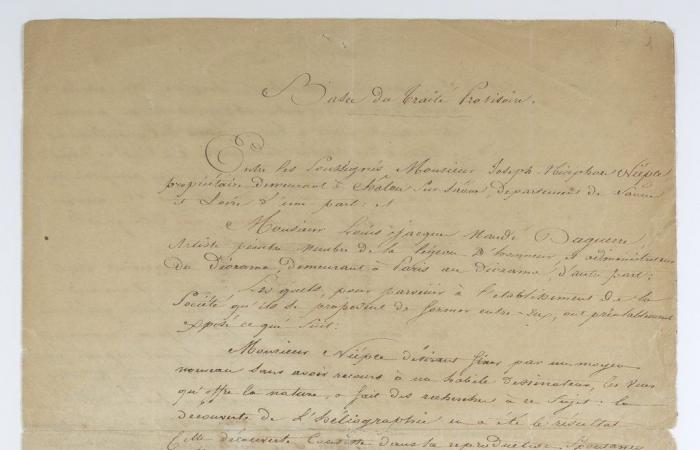 Bases du traité Provisoire.
Entre les Soussignés Monsieur Joseph Nicéphore Niépce
propriétaire demeurant à Châlon Sur Saône, département de Saône
et Loire d'une part; et
Monsieur Louis Jacques Mandé Daguerre
Artiste peintre membre de la légion d'honneur, administrateur
du Diorama, demeurant à Paris au diorama, d'autre part;
Les quels, pour parvenir à l'établissement de la
Société qu'ils se proposent de former entre-eux, ont préalablement
exposé ce qui Suit:
Monsieur Niépce désirant fixer par un moyen
nouveau Sans avoir recours à un habile dessinateur, les vues
qu'offre la nature, a fait des recherches à ce Sujet: la
découverte de l'héliographie en a été le résultat.
Cette découverte Consiste dans la reproduction Spontanée